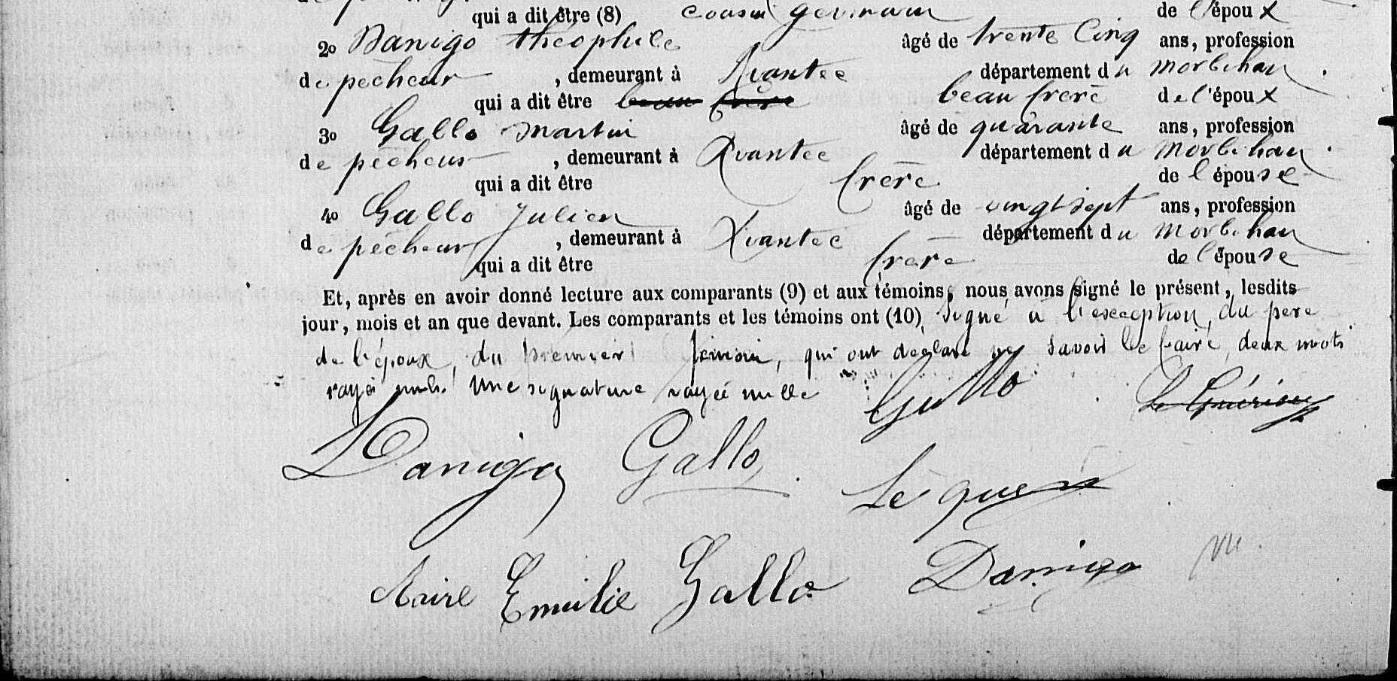 qui a dit être (8) cousin germain de l'époux
2º Danigo théophile âgé de trente cinq ans, profession
de pêcheur , demeurant à Riantec département du morbihan .
qui a dit être beau frère beau frère de l'époux
3º Gallo martin âgé de quarante ans, profession
de pêcheur , demeurant à Riantec département du morbihan .
qui a dit être frère de l'épouse
4º Gallo Julien âgé de vingt sept ans, profession
de pêcheur , demeurant à Riantec département du morbihan
qui a dit être frère de l'épouse
Et, après en avoir donné lecture aux comparants (9) et aux témoins, nous avons signé le présent, lesdits
jour, mois et an que devant. Les comparants et les témoins ont (10) signé à l'exception du père
de l'époux, du premier témoin, qui ont déclaré ne savoir le faire, deux mots
rayés nuls. Une signature rayée nulle Gallo
Danigo Gallo Le quer
Marie Emilie Gallo Danigo